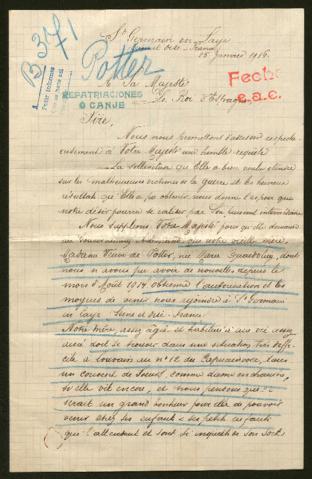 B 371
Potter
St Germain en Laye
Seine et Oise - France
15 janvier 1916.
Fecho
e.a.c.
A Sa Majesté
Le Roi d'Espagne
REPATRIACIONES
O CANJE
Sire,
Nous nous permettons d'adresser respec-
tueusement à Votre Majesté une humble requête
La sollicitude qu'Elle a bien voulu étendre
sur les malheureuses victimes de la guerre et les heureux
résultats qu'Elle a pu obtenir, nous donne l'espoir que
notre désir pourra se réaliser par Son puissant intermédiaire
Nous supplions Votre Majesté pour qu'Elle demande
au Gouvernement Allemand que notre vieille mère,
Madame Veuve de Potter, née Marie
dont
nous n'avons pu avoir de nouvelles depuis le
mois d'Août 1914 obtienne l'autorisation et les
moyens de venir nous rejoindre à St Germain
en Laye Seine et Oise France
Notre mère, assez âgée et habituée à une vie assez
doit se trouver dans une situation très diffi-
cile à Louvain au No 12 de Capucienvoer, dans
un couvent de Soeurs comme dame en chambre,
si elle vit encore, et nous pensons que ce
serait un grand bonheur pour elle de pouvoir
venir chez ses enfants et ses petits enfants
qui l'attendent et sont si inquiets de son sort